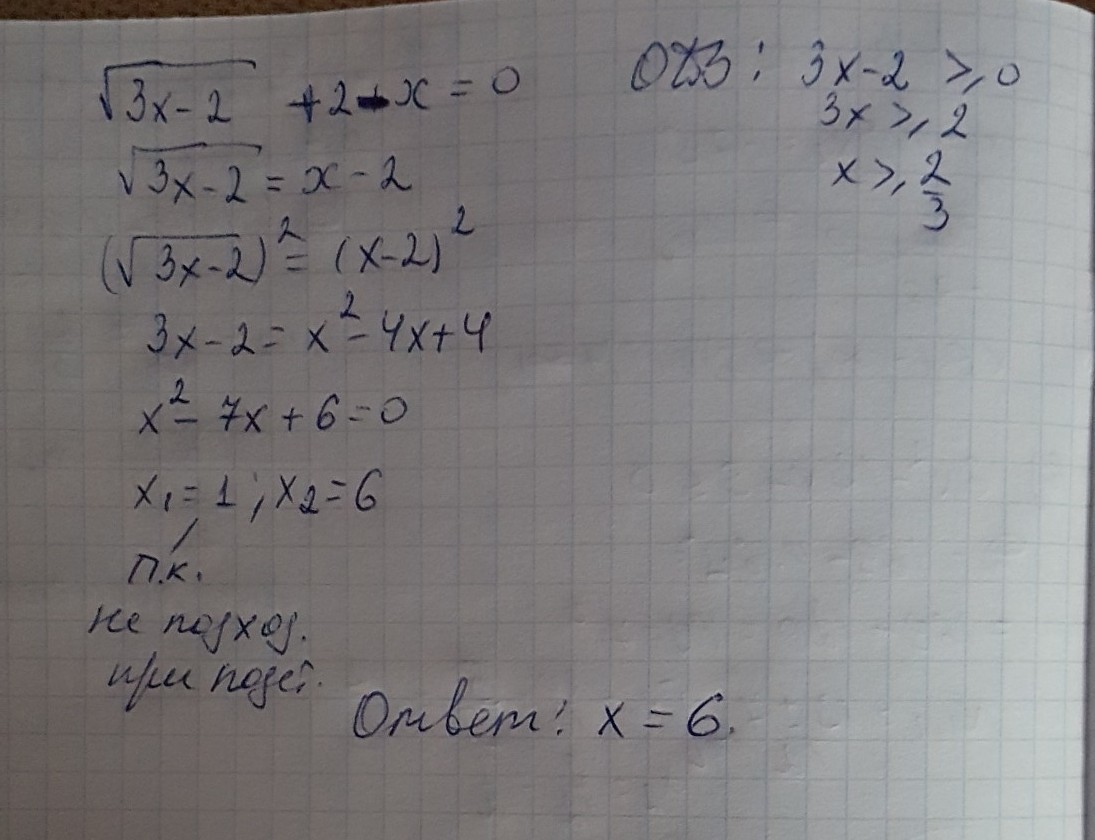 √(3x-2) +2-x=0
√(3x-2) = x-2
(√(3x-2))² = (x-2)²
3x-2 = x²-4x+4
x²-7x+6=0
x₁=1; x₂=6
п.к.
не подход.
при подст.
Ответ: x=6.
ОДЗ: 3x-2 ⩾ 0
3x ⩾ 2
x ⩾ 2/3